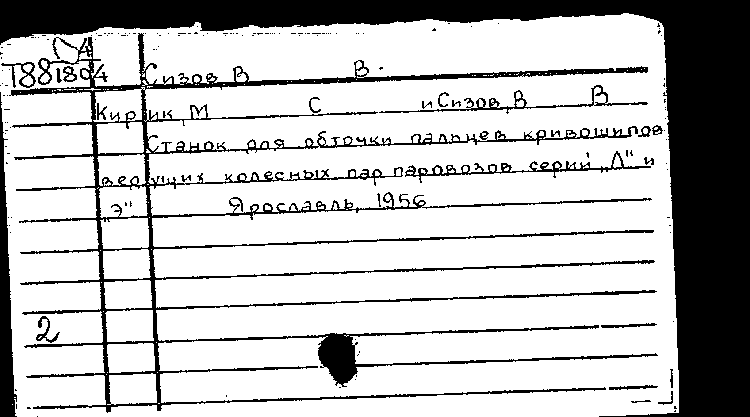 Т881804
Сизов, В В.
Кирик, М С и Сизов, В В
Станок для обточки пальцев кривошипов
ведущих колесных пар паровозов серий „Л" и
„Э" Ярославль, 1956
2